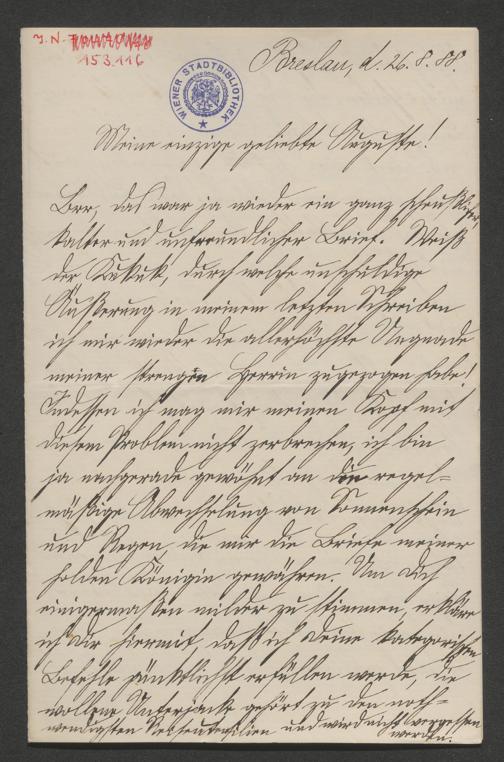 J. N.
153.116
WIENER STADTBIBLIOTHEK
Breslau, d. 26. 8. 88.
Meine einzige geliebte Auguste!
Brr, das war ja wieder ein ganz scheußlicher,
kalter und unfreundlicher Brief. Weiß
der Kukuk, durch welche unschuldige
Äußerung in meinem letzten Schreiben
ich mir wieder die allerhöchste Ungnade
meiner strengen Herrin zugezogen habe!
Indessen ich mag mir meinen Kopf mit
diesem Problem nicht zerbrechen, ich bin
ja nachgerade gewöhnt an die regel-
mäßige Abwechslung von Sonnenschein
und Regen, die mir die Briefe meiner
holden Königin gewähren. Um Dich
einigermaßen milder zu stimmen, erkläre
ich Dir hiermit, daß ich Deine kategorischen
Befehle pünktlichst erfüllen werde, die
wollene Unterjacke gehört zu den noth-
wendigsten Reiseutensilien und wird nicht vergessen
werden.